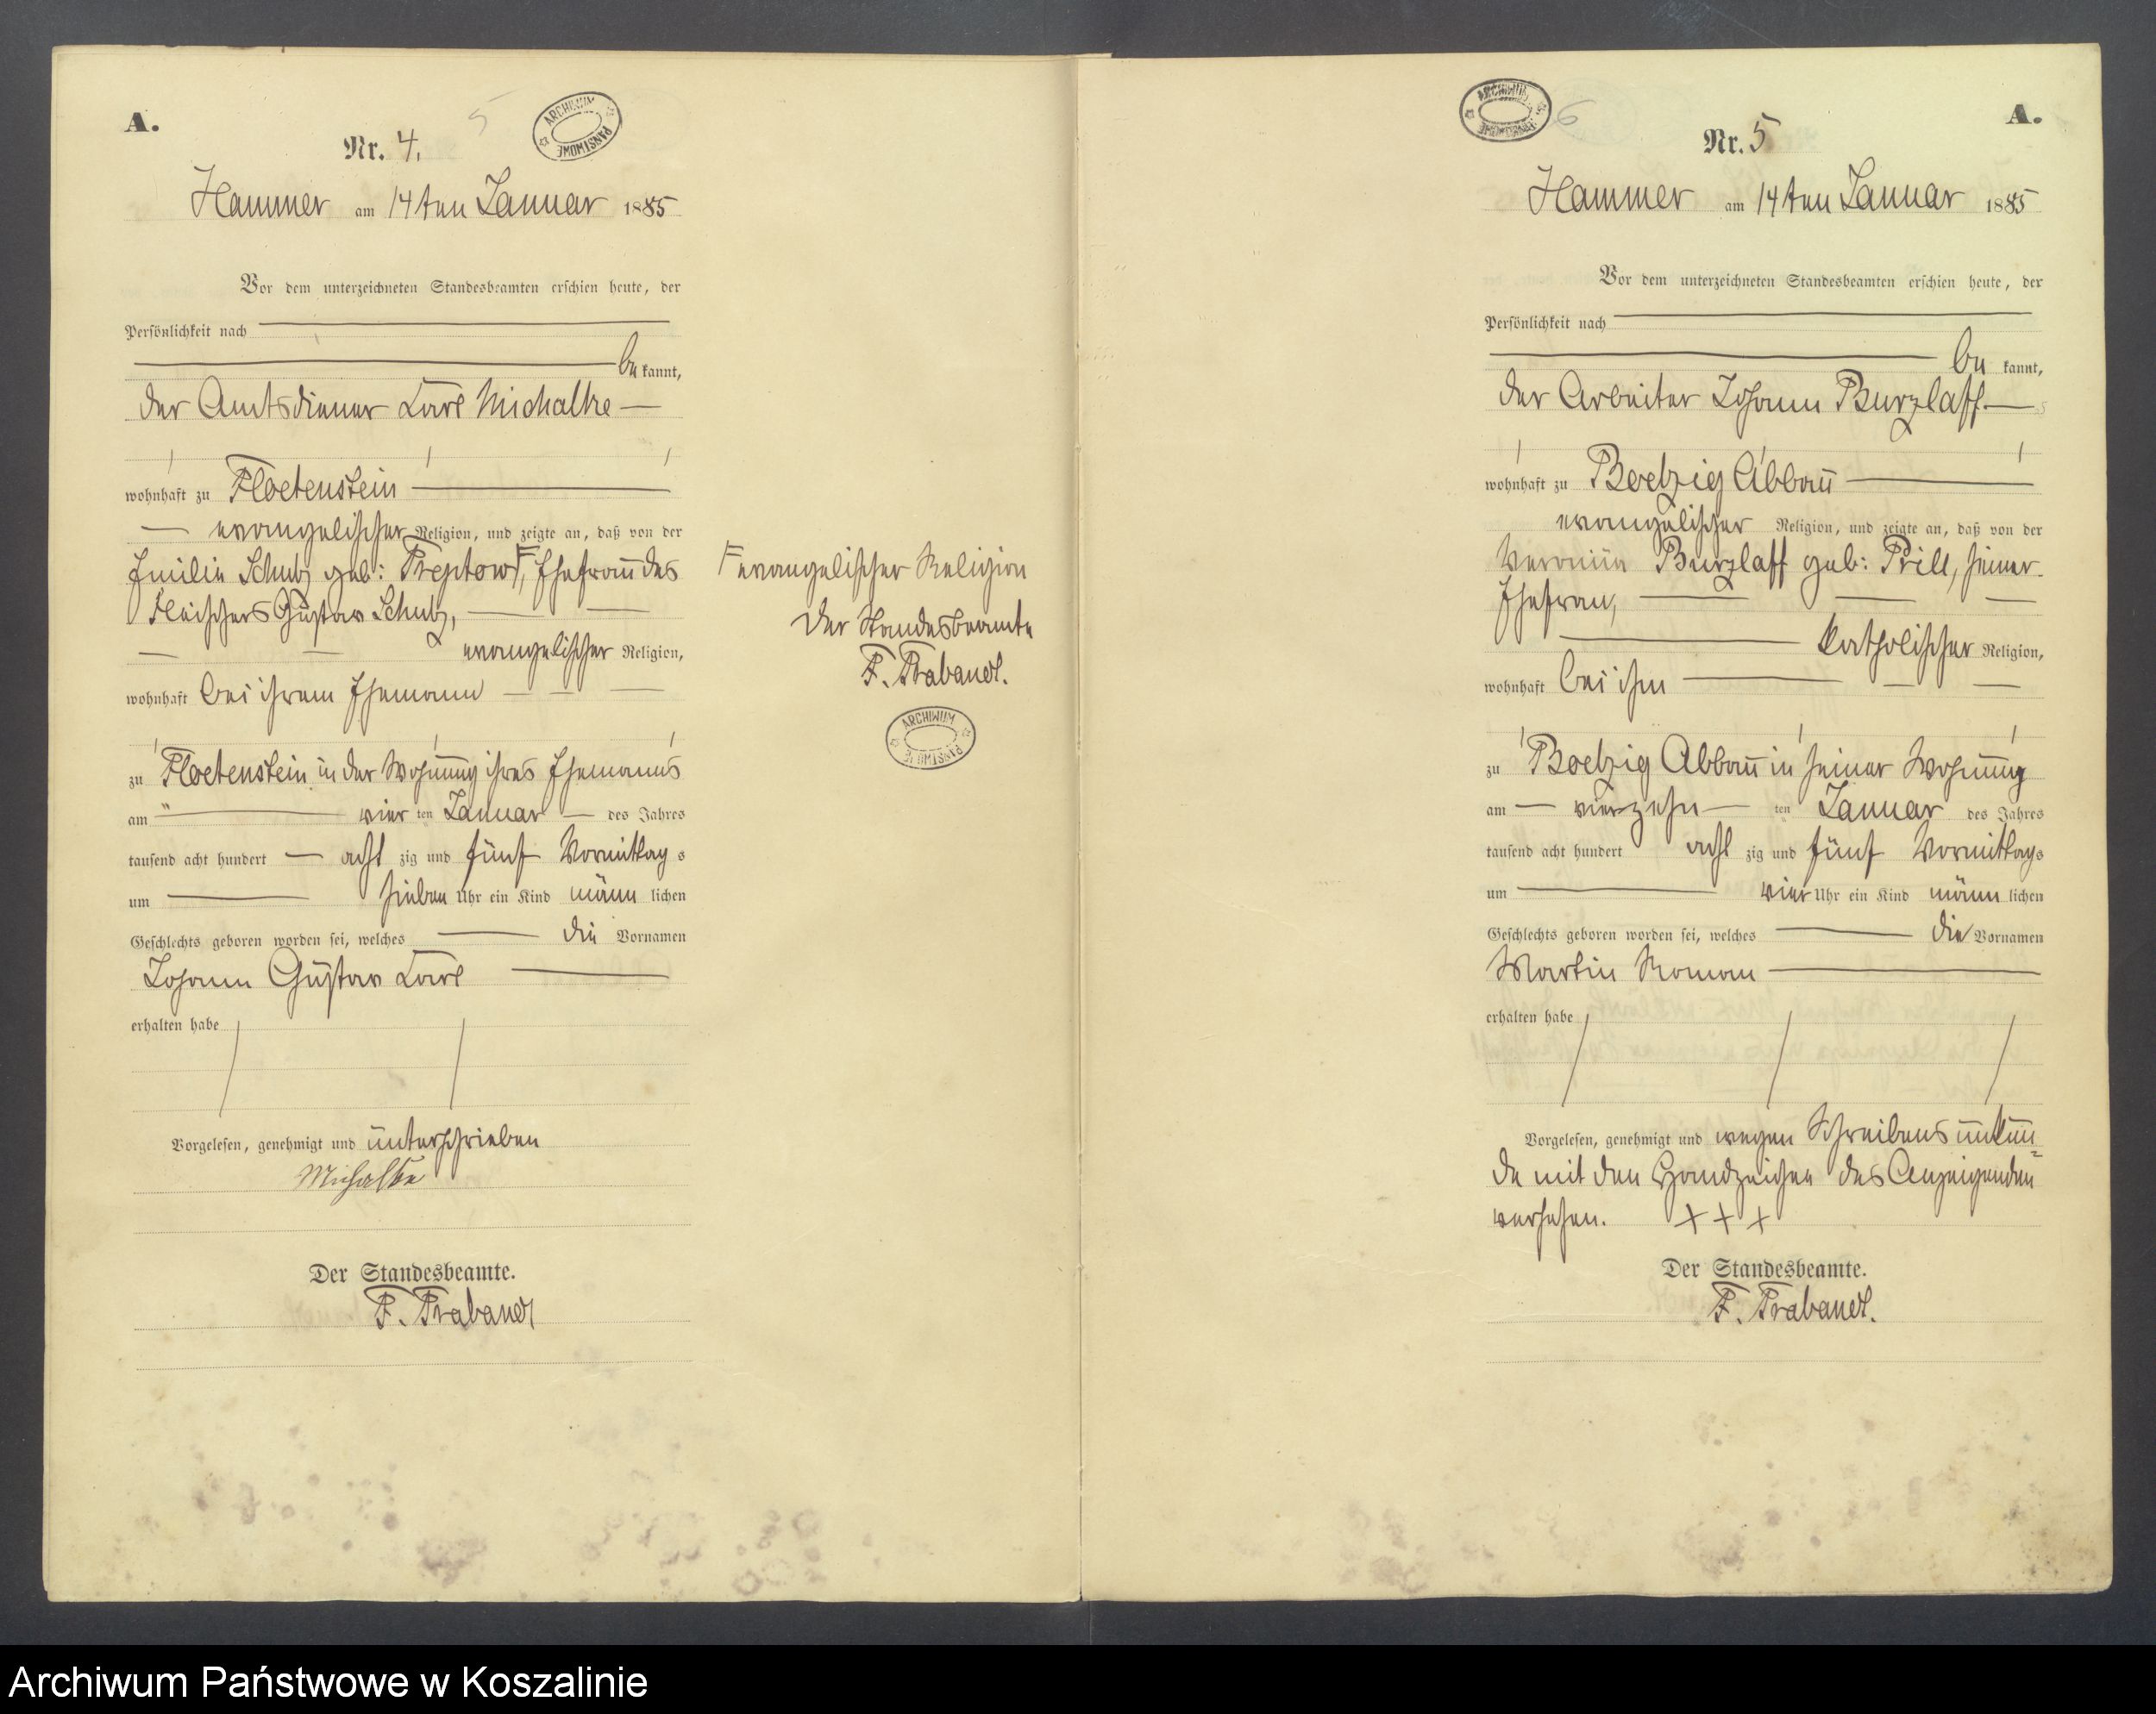 A.
5
ARCHIWUM PAŃSTWOWE
Nr. 4.
Hammer am 14ten Januar 1885
Vor dem unterzeichneten Standesbeamten erschien heute, der
Persönlichkeit nach
be kannt,
der Amtsdiener Carl Michalke
wohnhaft zu Floetenstein
evangelischer Religion, und zeigte an, daß von der
Emilie Schulz geb: Treptow F, Ehefrau des
Fleischers Gustav Schulz,
evangelischer Religion,
wohnhaft bei ihrem Ehemann
zu Floetenstein in der Wohnung ihres Ehemanns
am vier ten Januar des Jahres
tausend acht hundert acht zig und fünf Vormittag s
um sieben Uhr ein Kind männ lichen
Geschlechts geboren worden sei, welches die Vornamen
Johann Gustav Carl
erhalten habe
Vorgelesen, genehmigt und unterschrieben
Michalke
Der Standesbeamte.
F. Trabandt
F evangelischer Religion
Der Standesbeamte
F. Trabandt.
ARCHIWUM PAŃSTWOWE
ARCHIWUM PAŃSTWOWE
6
A.
Nr. 5
Hammer am 14ten Januar 1885
Vor dem unterzeichneten Standesbeamten erschien heute, der
Persönlichkeit nach
be kannt,
der Arbeiter Johann Burzlaff
wohnhaft zu Boelzig Abbau
evangelischer Religion, und zeigte an, daß von der
Burzlaff geb: Prill, seiner
Ehefrau,
katholischer Religion,
wohnhaft bei ihm
zu Boelzig Abbau in seiner Wohnung
am vierzehn ten Januar des Jahres
tausend acht hundert acht zig und fünf Vormittags
um vier Uhr ein Kind männ lichen
Geschlechts geboren worden sei, welches die Vornamen
Martin Roman
erhalten habe
Vorgelesen, genehmigt und wegen Schreibensunkun=
de mit den Handzeichen des Anzeigenden
versehen. + + +
Der Standesbeamte.
F. Trabandt.
Archiwum Państwowe w Koszalinie